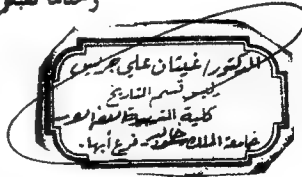 الدكتور/غيثان علي جريس
رئيس قسم التاريخ.
كلية التربية
جامعة الملك سعود. فرع أبها.